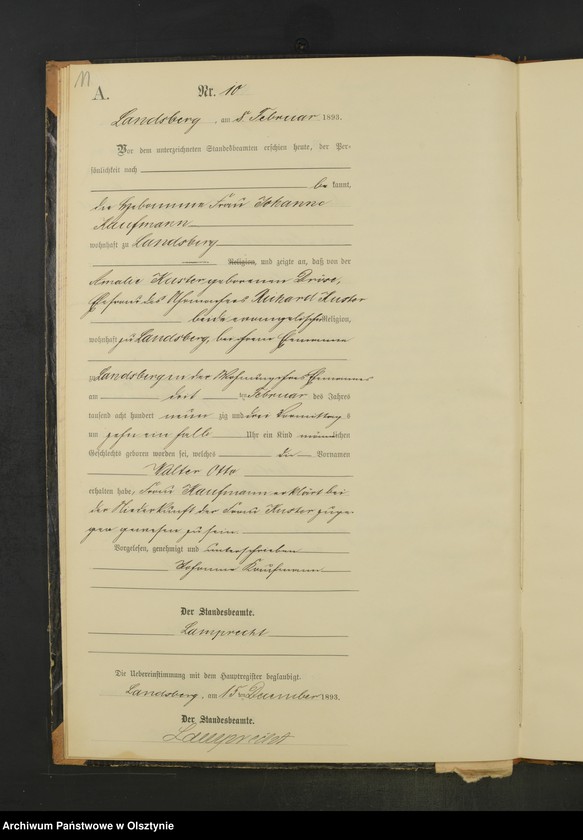 11
A.
Nr. 10
Landsberg, am 8 Februar 1893.
Vor dem unterzeichneten Standesbeamten erschien heute, der Per-
sönlichkeit nach
be kannt,
die Hebamme Frau Johanne
Kaufmann
wohnhaft zu Landsberg
Religion, und zeigte an, daß von der
Amalie Kuster geborenen
Ehefrau des Uhrmachers Richard Kuster
beide evangelischer Religion,
wohnhaft zu Landsberg, bei ihrem Ehemanne
zu Landsberg in der Wohnung ihres Ehemannes
am Februar des Jahres
tausend acht hundert neun zig und drei Vormittags
um zehn ein halb Uhr ein Kind männlichen
Geschlechts geboren worden sei, welches die Vornamen
Walter Otto
erhalten habe. Frau Kaufmann erklärt bei
der Niederkunft der Frau Kuster zuge-
gen gewesen zu sein
Vorgelesen, genehmigt und unterschrieben
Johanne Kaufmann
Der Standesbeamte.
Lamprecht
Die Uebereinstimmung mit dem Hauptregister beglaubigt.
Landsberg, am 15 ten December 1893.
Der Standesbeamte.
Lamprecht
Archiwum Państwowe w Olsztynie